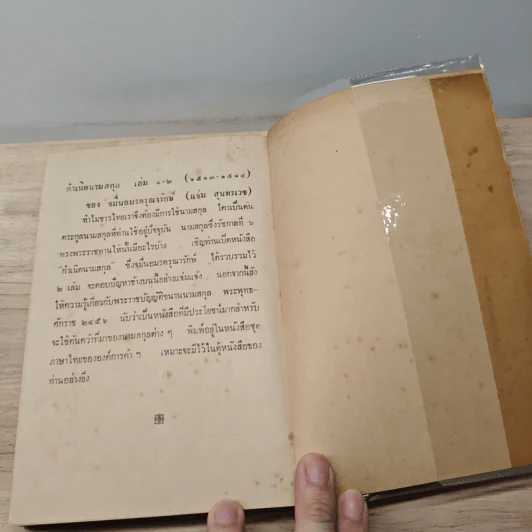 กำเนิดนามสกุล เล่ม ๑-๒ (๑๕๑๓-๑๕๑๔)
ของ จมื่นอมรดรุณรักษ์ (แจ่ม สุนทรเวช)
ทำไมชาวไทยเราจึงต้องมีการใช้นามสกุล ใครเป็นต้น
ตระกูลนามสกุลที่ท่านใช้อยู่ปัจจุบัน นามสกุลซึ่งรัชกาลที่ ๖
ทรงพระราชทานให้นั้นมีอะไรบ้าง เชิญท่านเปิดหนังสือ
"กำเนิดนามสกุล" ซึ่งจมื่นอมรดรุณารักษ์ ได้รวบรวมไว้
๒ เล่ม จะตอบปัญหาข้างบนนี้อย่างแจ่มแจ้ง นอกจากนี้ยัง
ให้ความรู้เกี่ยวกับพระราชบัญญัติขนานนามสกุล พระพุทธ-
ศักราช ๒๔๕๖ นับว่าเป็นหนังสือที่มีประโยชน์มากสำหรับ
จะใช้ค้นคว้าที่มาของนามสกุลต่าง ๆ พิมพ์อยู่ในหนังสือชุด
ภาษาไทยขององค์การค้า ฯ เหมาะจะมีไว้ในตู้หนังสือของ
ท่านอย่างยิ่ง